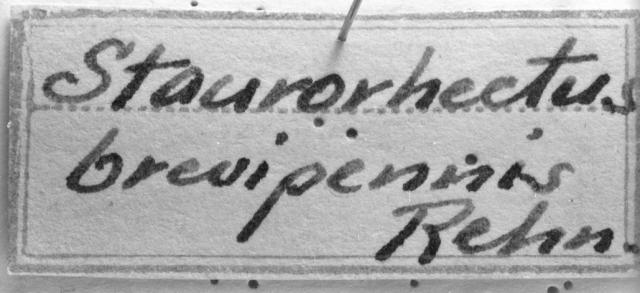 Staurorhectus
brevipennis
Rehn.